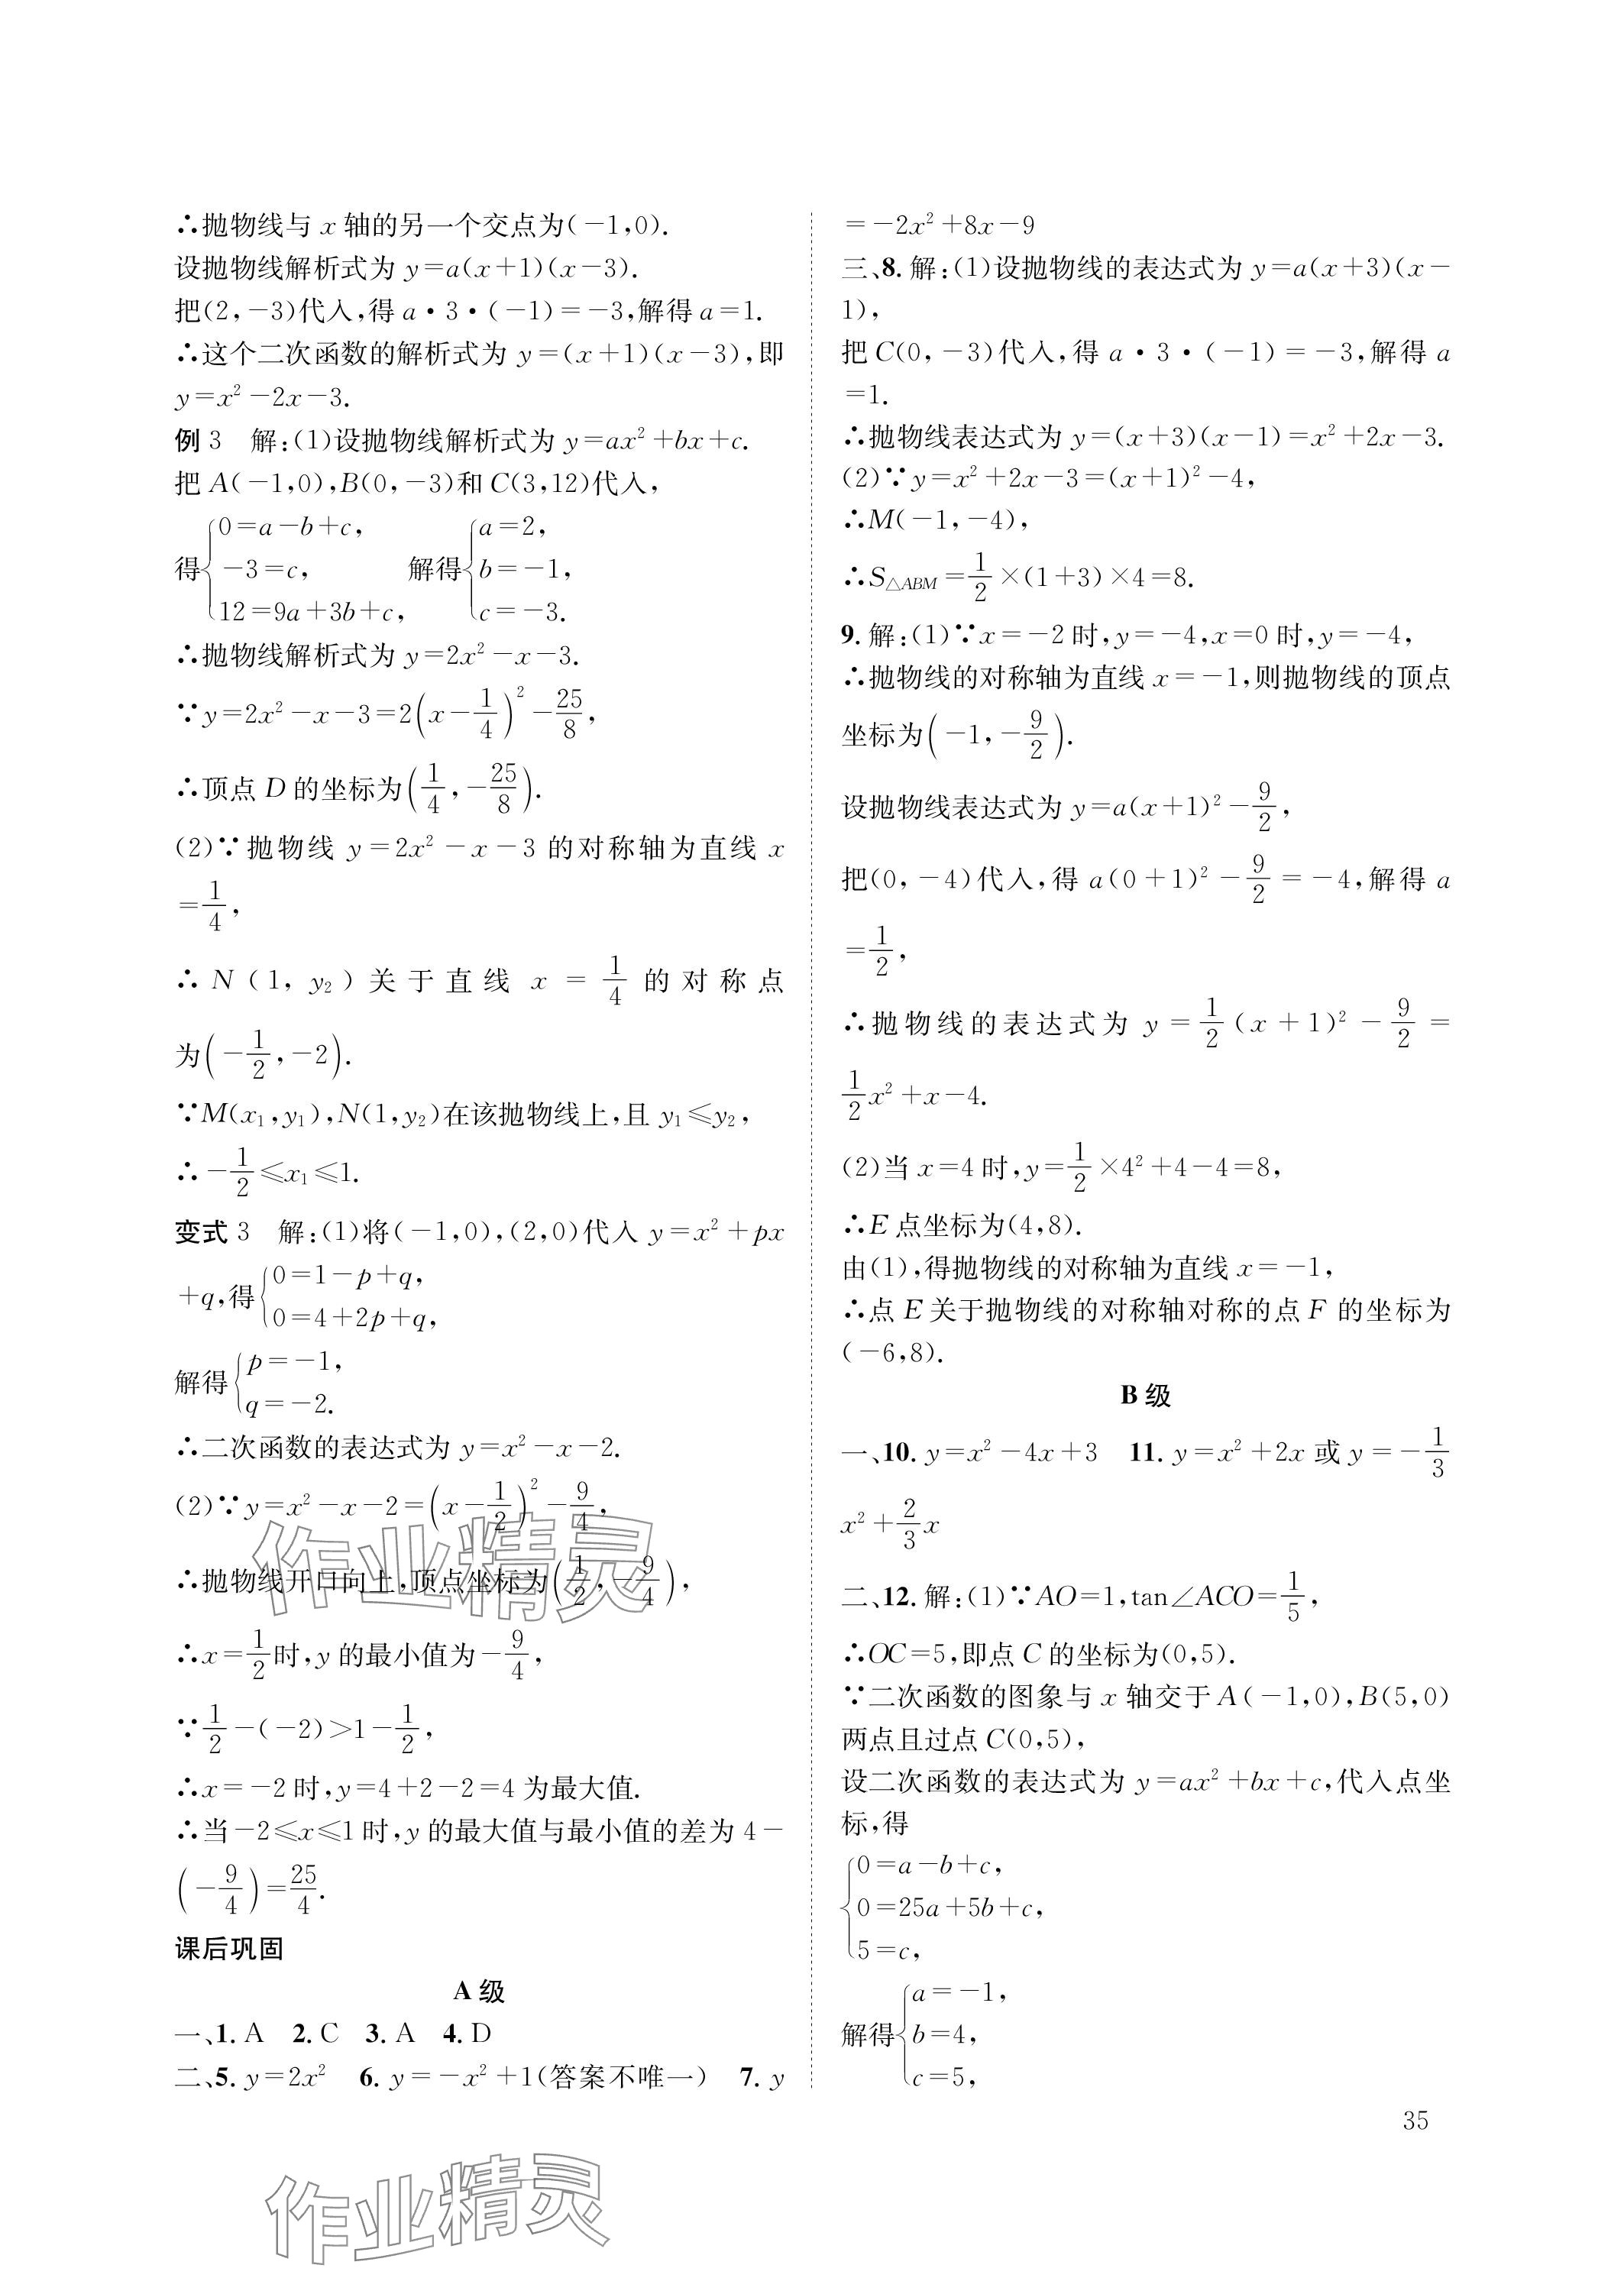 ∴抛物线与 x 轴的另一个交点为(−1,0).
设抛物线解析式为 y=a(x+1)(x−3).
把(2,−3)代入,得 a·3·(−1)=−3,解得 a=1.
∴这个二次函数的解析式为 y=(x+1)(x−3),即
y=x²−2x−3.
例 3　解:(1)设抛物线解析式为 y=ax²+bx+c.
把 A(−1,0),B(0,−3)和 C(3,12)代入,
得{0=a−b+c, −3=c, 12=9a+3b+c, 解得{a=2, b=−1, c=−3.
∴抛物线解析式为 y=2x²−x−3.
∵y=2x²−x−3=2(x−1/4)²−25/8,
∴顶点 D 的坐标为(1/4,−25/8).
(2)∵抛物线 y=2x²−x−3 的对称轴为直线 x
=1/4,
∴N(1,y₂)关于直线 x=1/4 的对称点
为(−1/2,−2).
∵M(x₁,y₁),N(1,y₂)在该抛物线上,且 y₁≤y₂,
∴−1/2≤x₁≤1.
变式 3　解:(1)将(−1,0),(2,0)代入 y=x²+px
+q,得{0=1−p+q, 0=4+2p+q,
解得{p=−1, q=−2.
∴二次函数的表达式为 y=x²−x−2.
(2)∵y=x²−x−2=(x−1/2)²−9/4,
∴抛物线开口向上,顶点坐标为(1/2,−9/4),
∴x=1/2时,y 的最小值为−9/4,
∵1/2−(−2)>1−1/2,
∴x=−2 时,y=4+2−2=4 为最大值.
∴当−2≤x≤1 时,y 的最大值与最小值的差为 4−
(−9/4)=25/4.
课后巩固
A 级
一、1. A　2. C　3. A　4. D
二、5. y=2x²　6. y=−x²+1(答案不唯一)　7. y
=−2x²+8x−9
三、8. 解:(1)设抛物线的表达式为 y=a(x+3)(x−
1),
把 C(0,−3)代入,得 a·3·(−1)=−3,解得 a
=1.
∴抛物线表达式为 y=(x+3)(x−1)=x²+2x−3.
(2)∵y=x²+2x−3=(x+1)²−4,
∴M(−1,−4),
∴S△ABM=1/2×(1+3)×4=8.
9. 解:(1)∵x=−2 时,y=−4,x=0 时,y=−4,
∴抛物线的对称轴为直线 x=−1,则抛物线的顶点
坐标为(−1,−9/2).
设抛物线表达式为 y=a(x+1)²−9/2,
把(0,−4)代入,得 a(0+1)²−9/2=−4,解得 a
=1/2,
∴抛物线的表达式为 y=1/2(x+1)²−9/2=
1/2x²+x−4.
(2)当 x=4 时,y=1/2×4²+4−4=8,
∴E 点坐标为(4,8).
由(1),得抛物线的对称轴为直线 x=−1,
∴点 E 关于抛物线的对称轴对称的点 F 的坐标为
(−6,8).
B 级
一、10. y=x²−4x+3　11. y=x²+2x 或 y=−1/3
x²+2/3x
二、12. 解:(1)∵AO=1,tan∠ACO=1/5,
∴OC=5,即点 C 的坐标为(0,5).
∵二次函数的图象与 x 轴交于 A(−1,0),B(5,0)
两点且过点 C(0,5),
设二次函数的表达式为 y=ax²+bx+c,代入点坐
标,得
{0=a−b+c, 0=25a+5b+c, 5=c,
解得{a=−1, b=4, c=5,
35
作业精灵
作业精灵